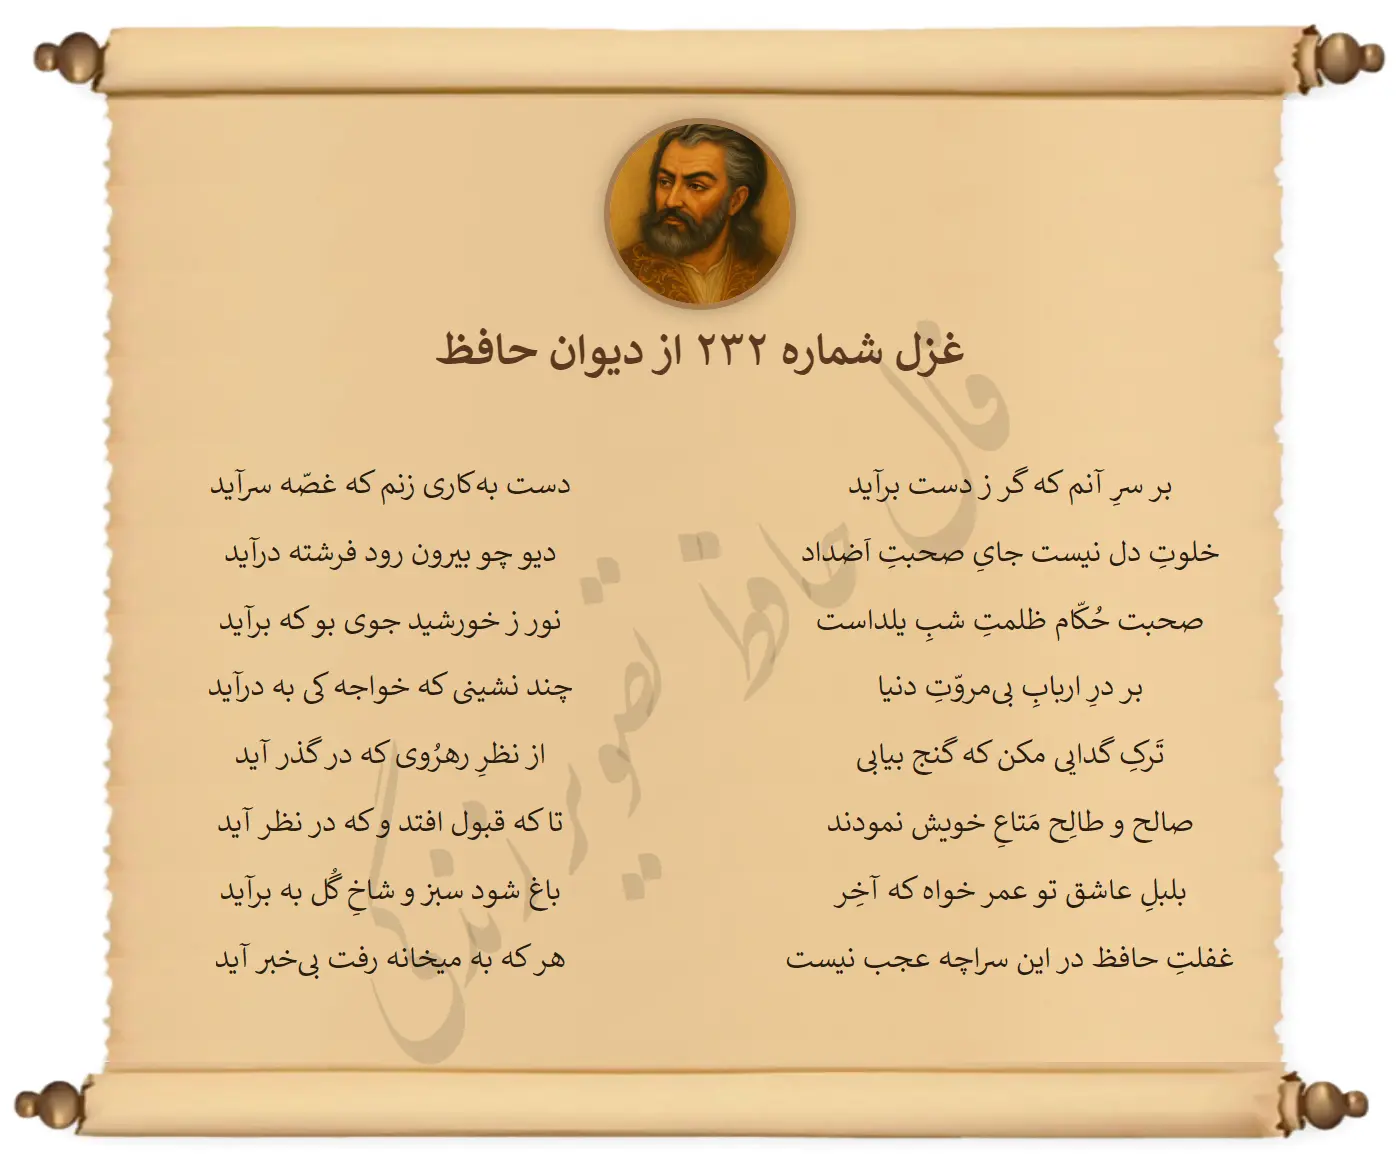 غزل شماره ۲۳۲ از دیوان حافظ
بر سرِ آنم که گر ز دست برآید
دست به‌کاری زنم که غصّه سرآید
خلوتِ دل نیست جایِ صحبتِ اَضداد
دیو چو بیرون رود فرشته درآید
صحبت حُکّام ظلمتِ شبِ یلداست
نور ز خورشید جوی بو که برآید
بر درِ اربابِ بی‌مروّتِ دنیا
چند نشینی که خواجه کی به درآید
تَرکِ گدایی مکن که گنج بیابی
از نظرِ رهرُوی که در گذر آید
صالح و طالِح مَتاعِ خویش نمودند
تا که قبول افتد و که در نظر آید
بلبلِ عاشق تو عمر خواه که آخِر
باغ شود سبز و شاخِ گُل به برآید
غفلتِ حافظ در این سراچه عجب نیست
هر که به میخانه رفت بی‌خبر آید
فال حافظ تصویر زندگی